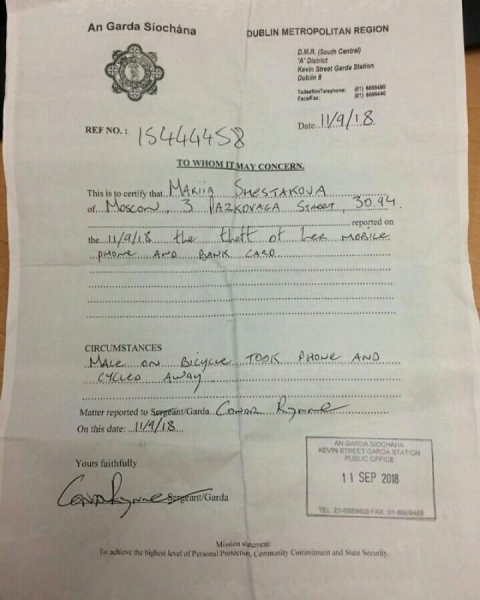 An Garda Síochána
DUBLIN METROPOLITAN REGION
D.M.R. (South Central)
'A' District
Kevin Street Garda Station
Dublin 8
Telefón/Telephone:
Facs/Fax:
Date 11/9/18
REF NO. : 15444458
TO WHOM IT MAY CONCERN.
This is to certify that MARIIA SHESTAKOVA
of MOSCOW, 3 STREET, 30.94.
reported on
the 11/9/18 the theft of her MOBILE
PHONE AND BANK CARD
CIRCUMSTANCES
MALE ON BICYCLE TOOK PHONE AND
CYCLED AWAY
Matter reported to Sergeant/Garda Conor Rynne
On this date: 11/9/18
Yours faithfully
Conor Rynne Sergeant/Garda
AN GARDA SIOCHANA
KEVIN STREET GARDA STATION
PUBLIC OFFICE
11 SEP 2018
Mission statement:
To achieve the highest level of Personal Protection, Community Commitment and State Security.